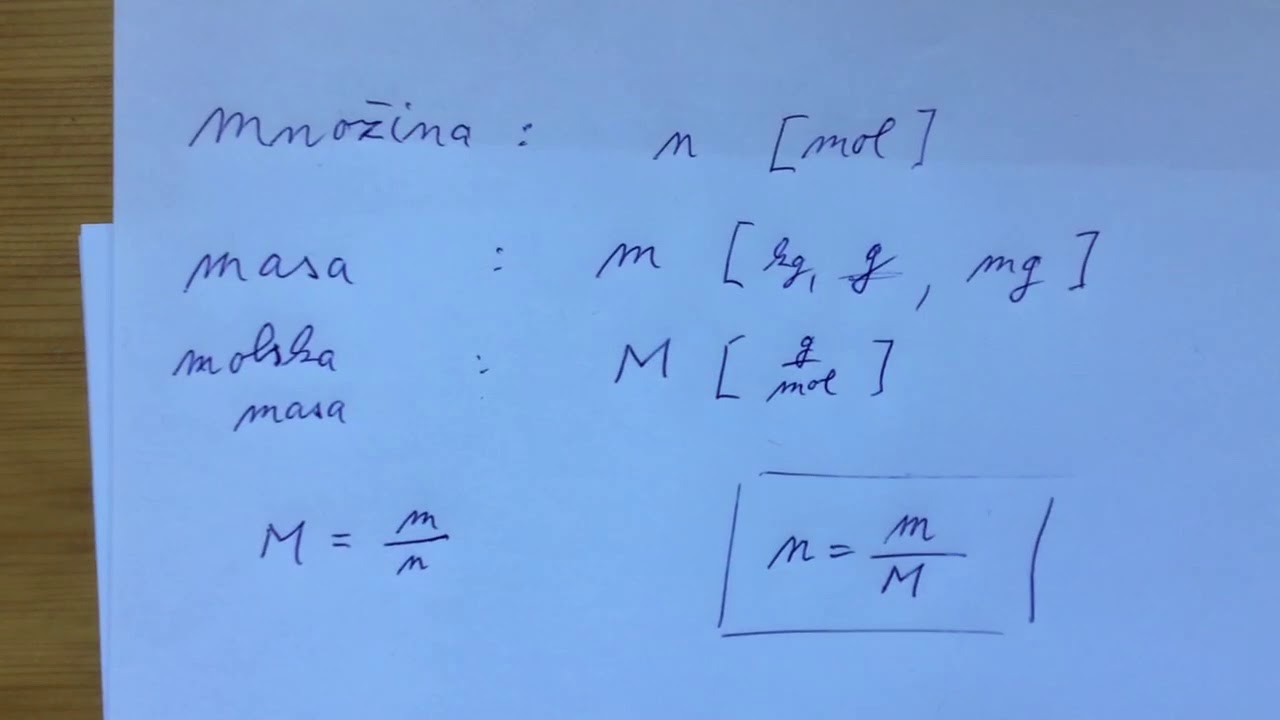 množina : n [mol]
masa : m [kg, g, mg]
molska : M [g/mol]
masa
M = m/n
n = m/M